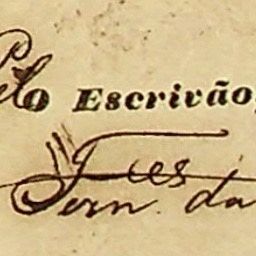 Pelo Escrivão,
Fern. da